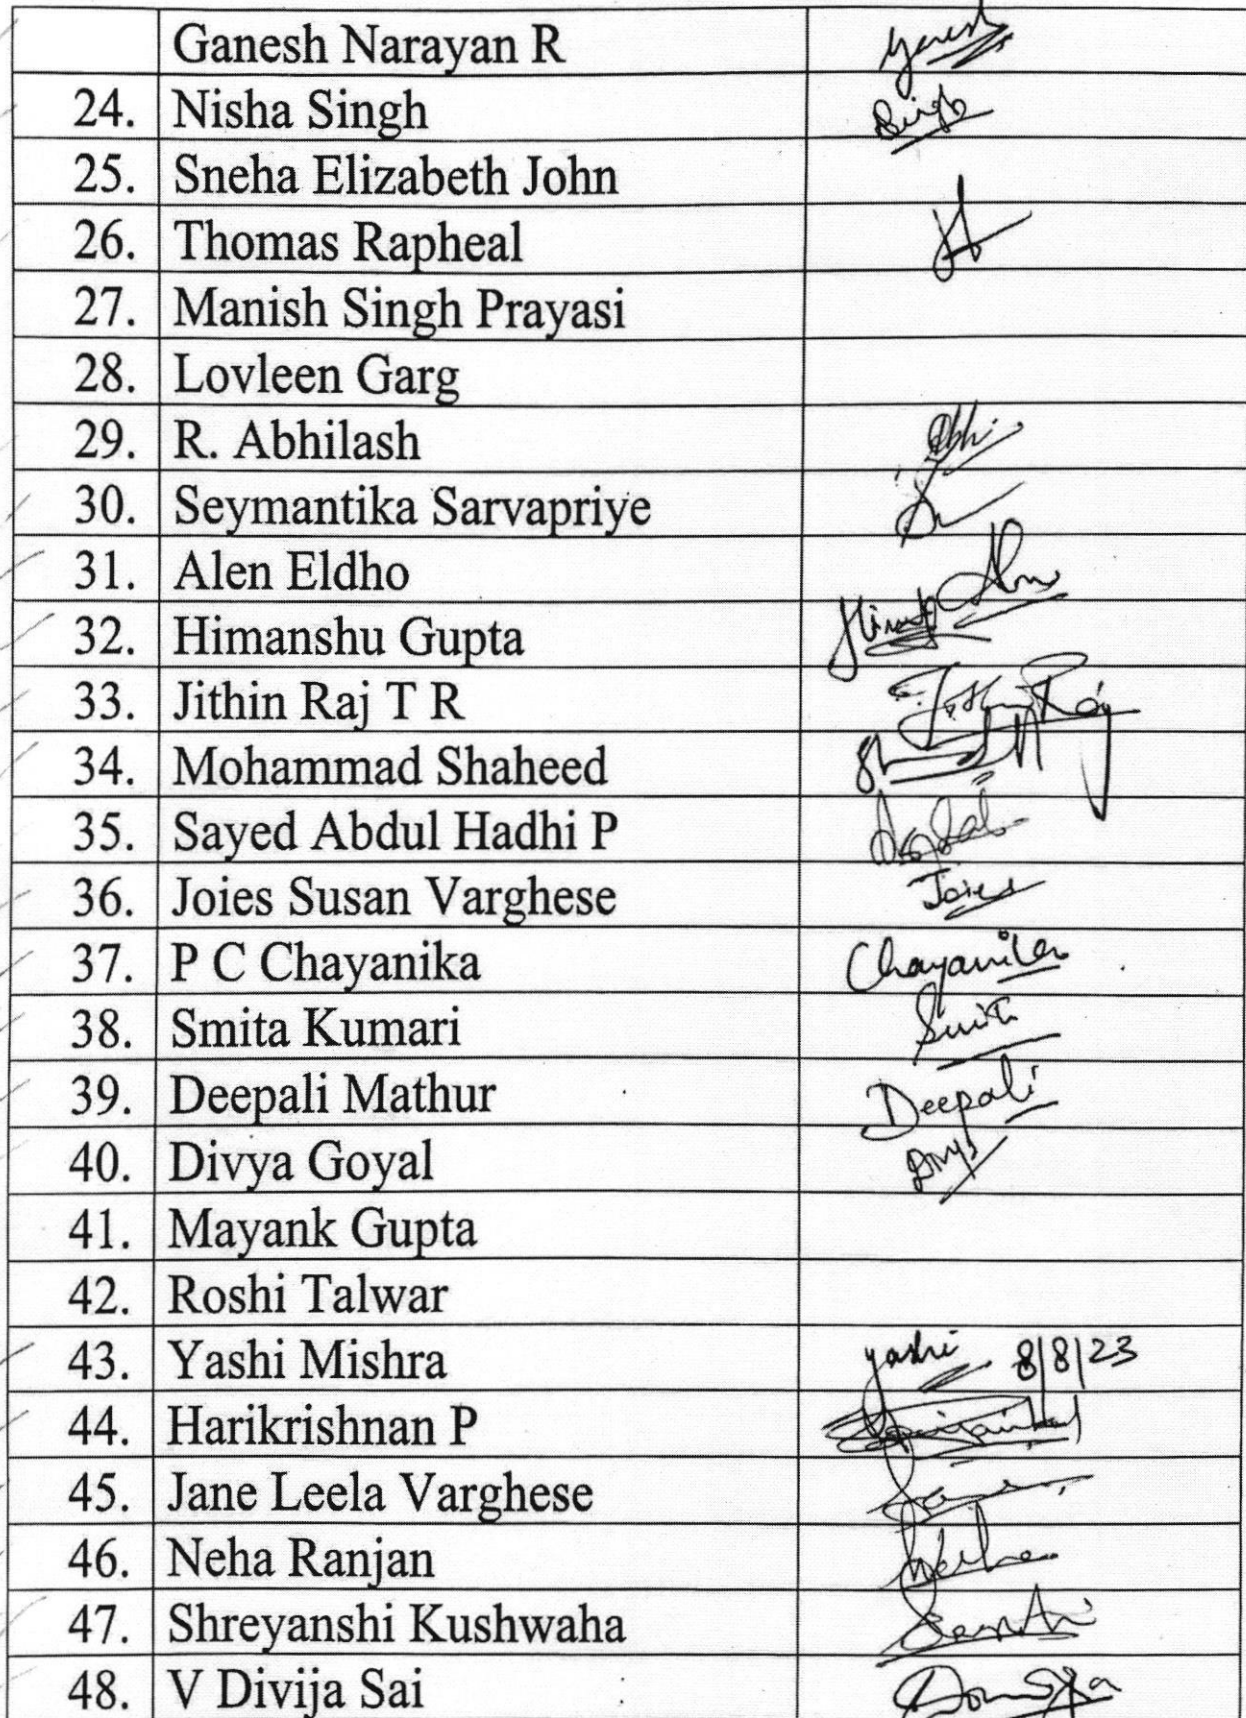 Ganesh Narayan R Ganesh
24. Nisha Singh Singh
25. Sneha Elizabeth John
26. Thomas Rapheal
27. Manish Singh Prayasi
28. Lovleen Garg
29. R. Abhilash Abhi
30. Seymantika Sarvapriye
31. Alen Eldho
32. Himanshu Gupta
33. Jithin Raj T R Jithin Raj
34. Mohammad Shaheed
35. Sayed Abdul Hadhi P
36. Joies Susan Varghese Joies
37. P C Chayanika Chayanika
38. Smita Kumari Smita
39. Deepali Mathur Deepali
40. Divya Goyal Divya
41. Mayank Gupta
42. Roshi Talwar
43. Yashi Mishra Yashi 8/8/23
44. Harikrishnan P
45. Jane Leela Varghese
46. Neha Ranjan Neha
47. Shreyanshi Kushwaha
48. V Divija Sai